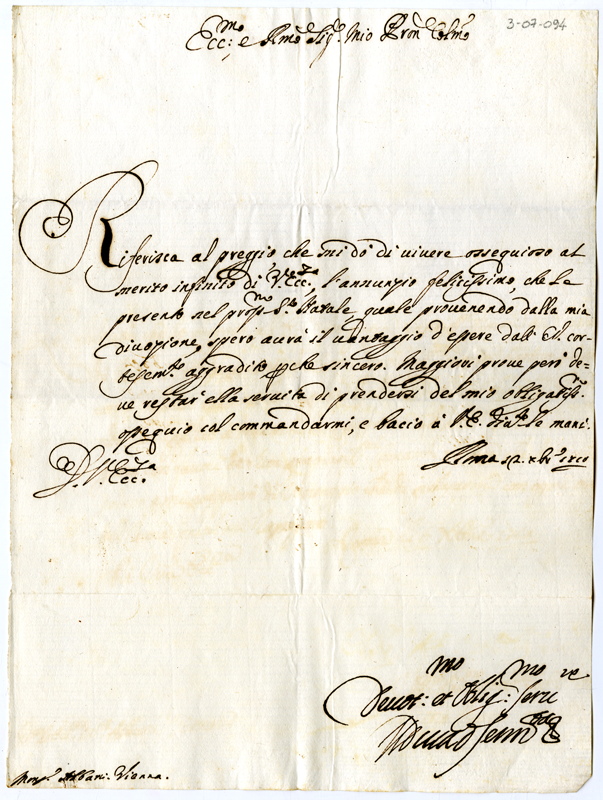 3-07-094
Ecc:mo e Rmo Sigre Mio Pron Colmo
Riferisca al preggio che mi dò di vivere ossequioso al
merito infinito di V. Ecc.za, l'annunzio felicissimo, che Le
presento nel prossmo Sto Natale, quale provenendo dalla mia
divozione, spero aurà il vantaggio d'essere dall' E.V. cor-
tesemte aggradito pche sincero. Maggiori prove però de-
ve restar ella servita di prendersi del mio obligatiss.
ossequio col commandarmi, e bacio à V.E. le mani.
D. V. Ecc.za
Roma 12. xbre
Devot:mo et Oblig:mo Servre
Monsr Albani. Vienna.